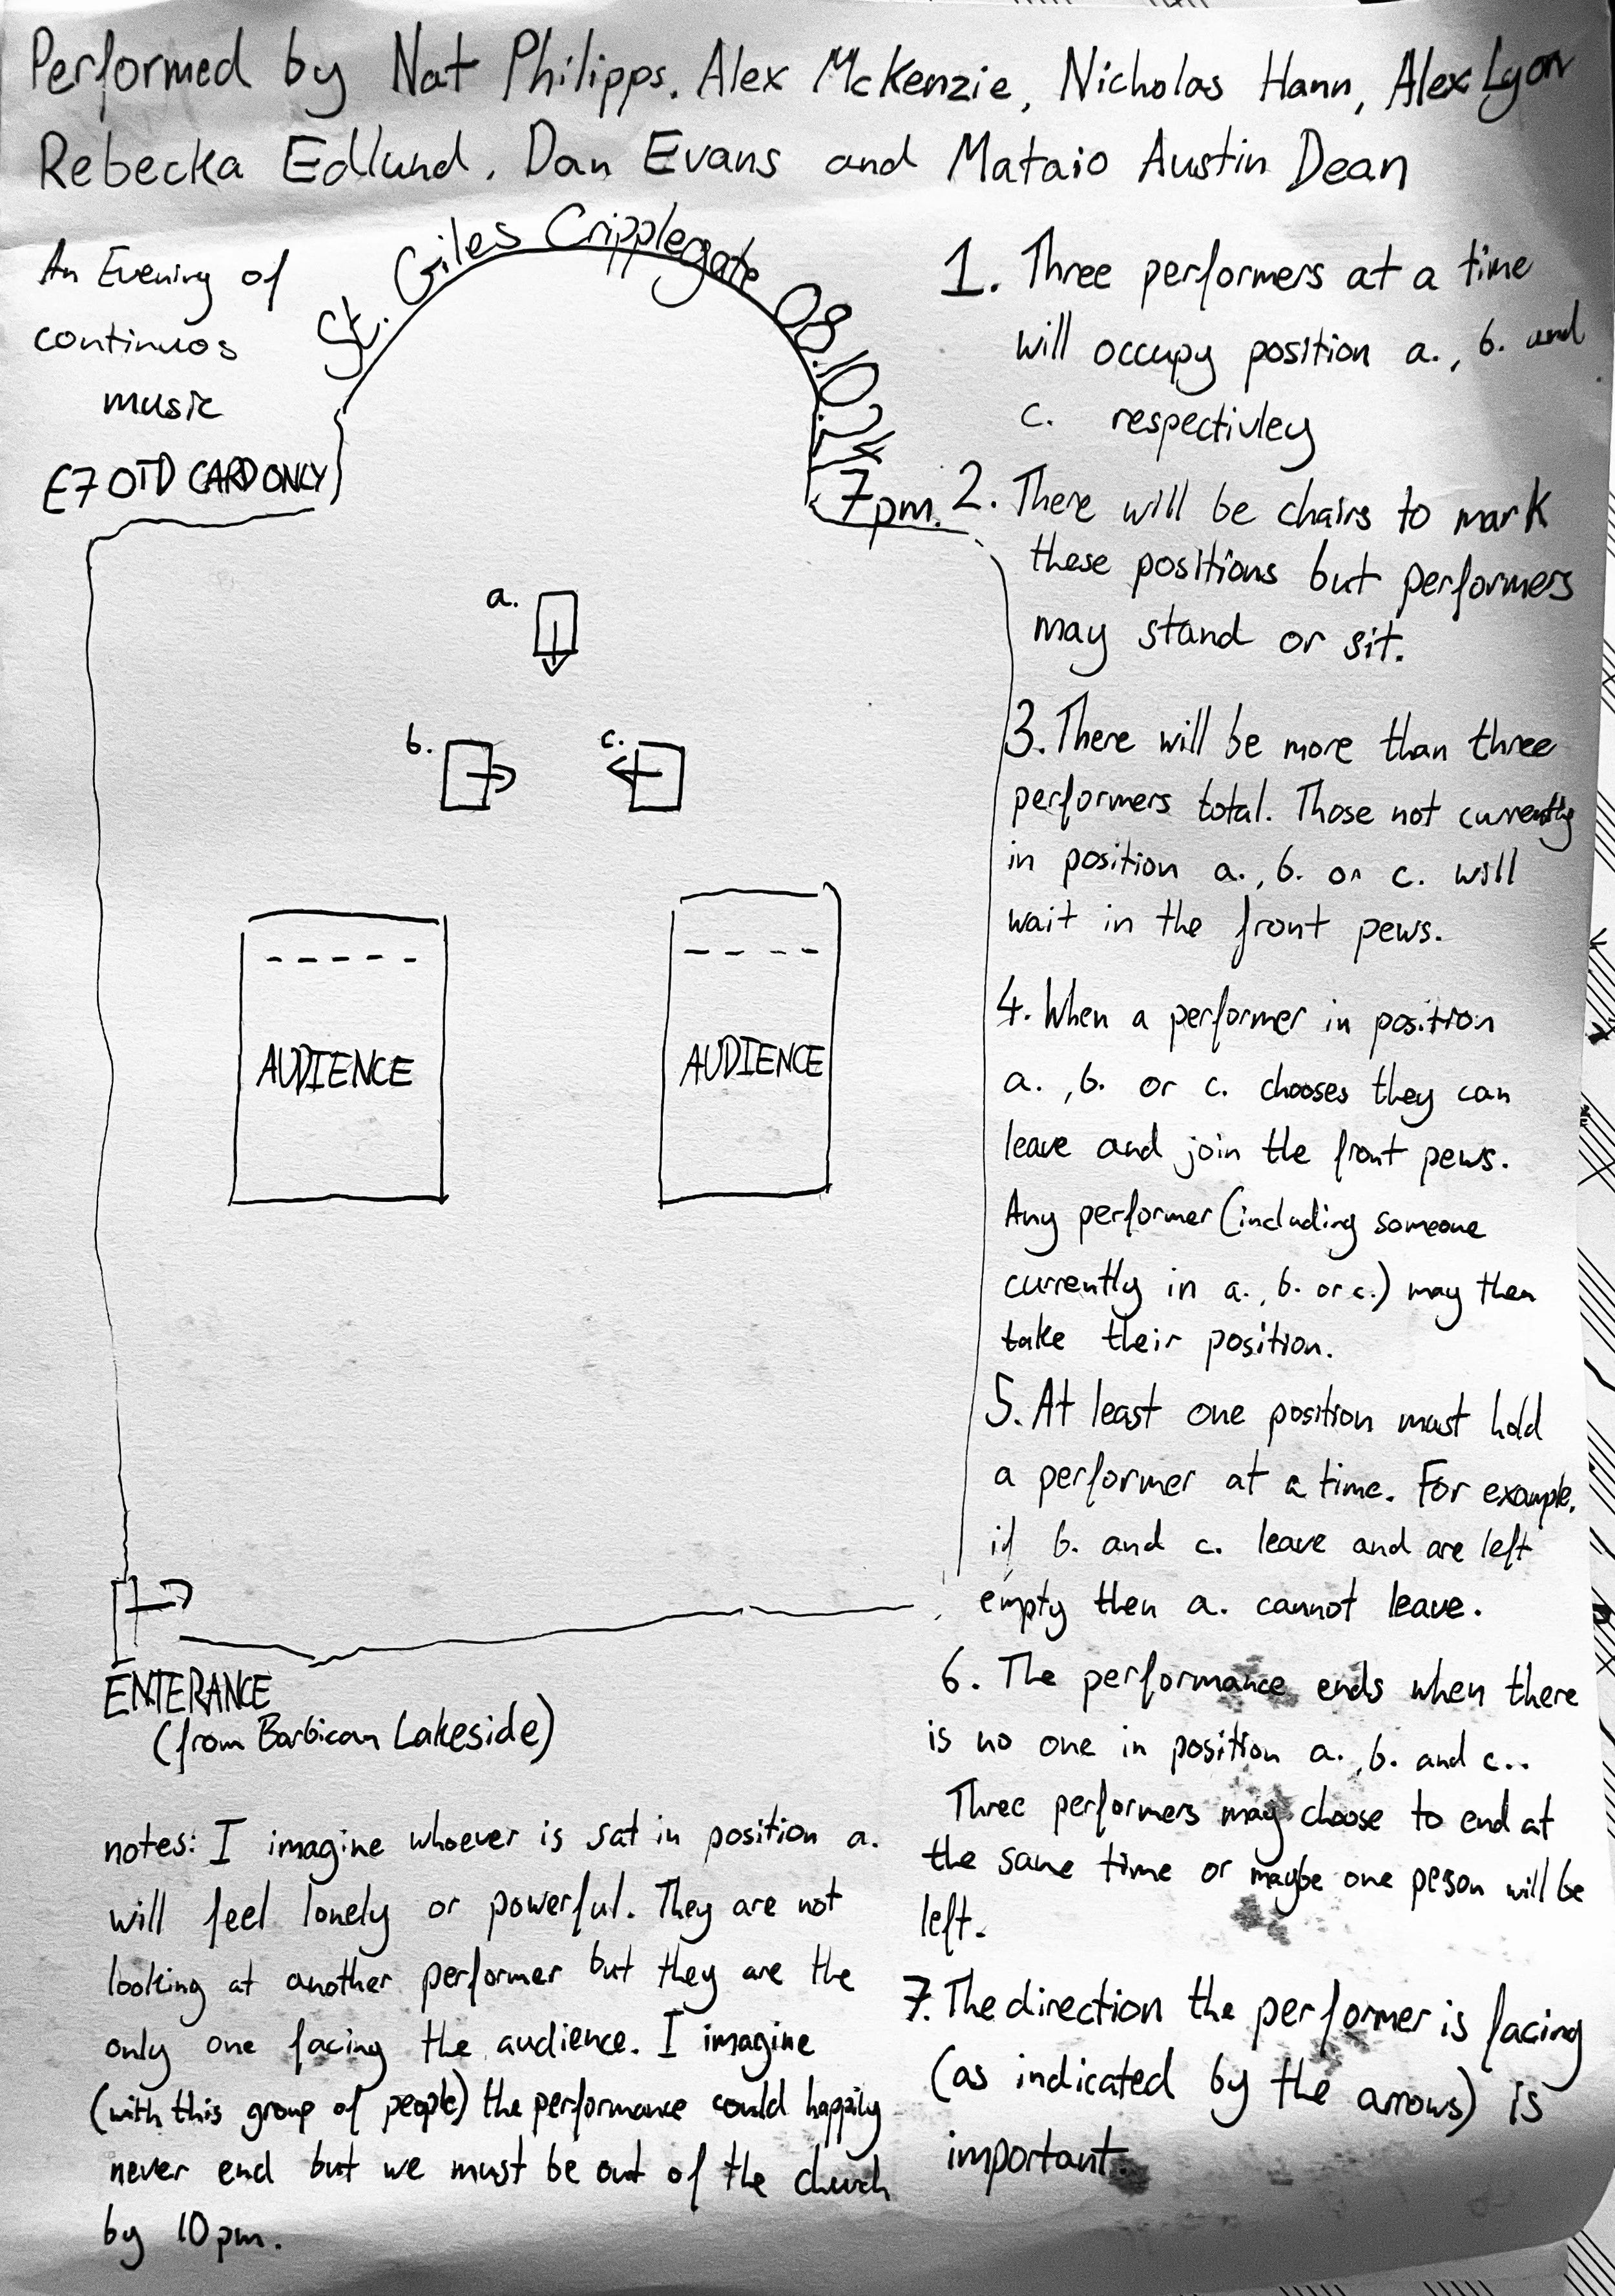 Performed by Nat Philipps. Alex McKenzie, Nicholas Hann, Alex Lyon
Rebecka Edlund. Dan Evans and Mataio Austin Dean
An Evening of
continuos
music
£7 OTD CARD ONLY
St. Giles Cripplegate 08.10.24
7pm.
a.
b.
c.
AUDIENCE
AUDIENCE
ENTERANCE
(from Barbican Lakeside)
notes: I imagine whoever is sat in position a.
will feel lonely or powerful. They are not
looking at another performer but they are the
only one facing the audience. I imagine
(with this group of people) the performance could happily
never end but we must be out of the church
by 10pm.
1. Three performers at a time
will occupy position a., b. and
c. respectivley
2. There will be chairs to mark
these positions but performers
may stand or sit.
3. There will be more than three
performers total. Those not currently
in position a., b. or c. will
wait in the front pews.
4. When a performer in position
a., b. or c. chooses they can
leave and join the front pews.
Any performer (including someone
currently in a., b. or c.) may then
take their position.
5. At least one position must hold
a performer at a time. For example,
if b. and c. leave and are left
empty then a. cannot leave.
6. The performance ends when there
is no one in position a., b. and c..
Three performers may choose to end at
the same time or maybe one person will be
left.
7. The direction the performer is facing
(as indicated by the arrows) is
important.